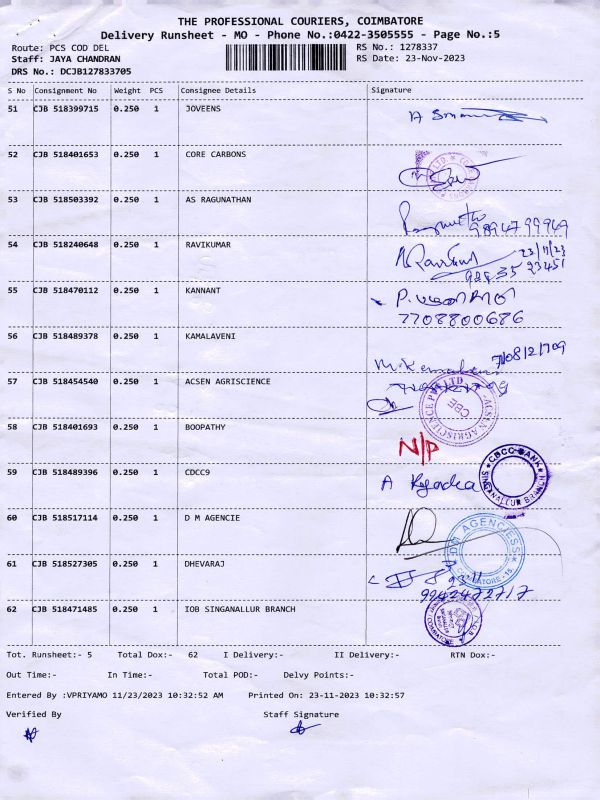 THE PROFESSIONAL COURIERS, COIMBATORE
Delivery Runsheet - MO - Phone No.:0422-3505555 - Page No.:5
Route: PCS COD DEL
RS No.: 1278337
Staff: JAYA CHANDRAN
RS Date: 23-Nov-2023
DRS No.: DCJB127833705
S No Consignment No Weight PCS Consignee Details Signature
51 CJB 518399715 0.250 1 JOVEENS
52 CJB 518401653 0.250 1 CORE CARBONS
53 CJB 518503392 0.250 1 AS RAGUNATHAN
9894799949
54 CJB 518240648 0.250 1 RAVIKUMAR
23/11/23
55 CJB 518470112 0.250 1 KANNANT
7708800686
56 CJB 518489378 0.250 1 KAMALAVENI
57 CJB 518454540 0.250 1 ACSEN AGRISCIENCE
ACSEN AGRISCIENCE PVT LTD
CBE
58 CJB 518401693 0.250 1 BOOPATHY
N/P
59 CJB 518489396 0.250 1 CDCC9
CBCC BANK
SINGANALLUR BRANCH
60 CJB 518517114 0.250 1 D M AGENCIE
COIMBATORE-15.
61 CJB 518527305 0.250 1 DHEVARAJ
9942472717
62 CJB 518471485 0.250 1 IOB SINGANALLUR BRANCH
Tot. Runsheet:- 5 Total Dox:- 62 I Delivery:- II Delivery:- RTN Dox:-
Out Time:- In Time:- Total POD:- Delvy Points:-
Entered By :VPRIYAMO 11/23/2023 10:32:52 AM Printed On: 23-11-2023 10:32:57
Verified By Staff Signature